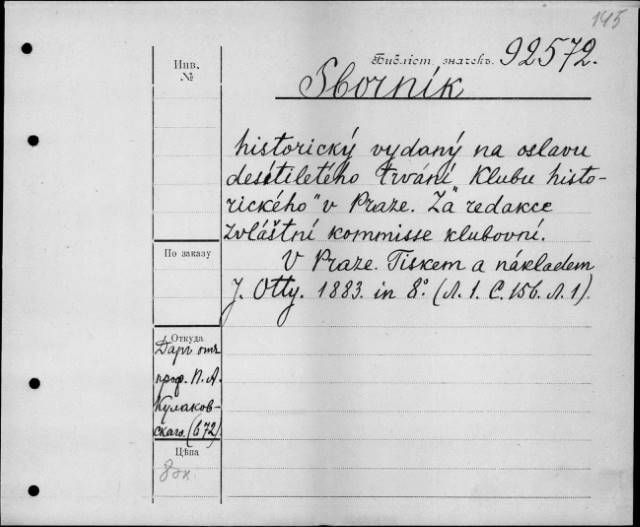 145
Инв.
№
Библіот. значекъ. 92572.
Sborník
historický vydaný na oslavu
desítiletého trvání „Klubu histo-
rického" v Praze. Za redakce
zvláštní kommisse klubovní.
V Praze. Tiskem a nákladem
J. Otty. 1883. in 8°. (Л. 1. С. 156. Л. 1).
По заказу
Откуда
Даръ отъ
проф. П. А.
Кулаков-
скаго. (672)
Цѣна